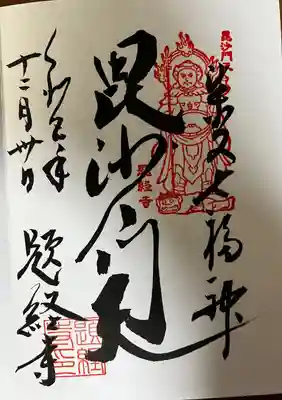 柴又七福神
毘沙門天
題経寺
毘沙門天
令和 年
十二月卅日
題経寺